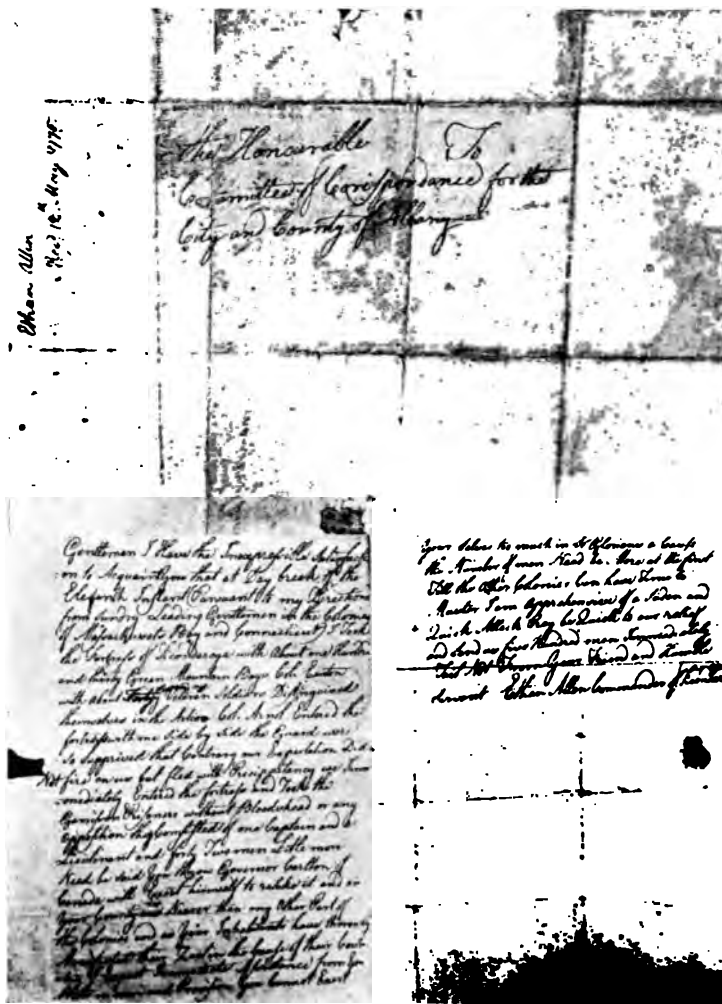 To
the Honourable
Committee of Corrispondance for the
City and County of Albany
Ethan Allen
Recd 12th May 1775.
Gentlemen I Have the Inexpressible Satisfacti
-on to Acquaint you that at Day break of the
Eleventh Instant Pursuant to my Directions
from sundry Leading Gentlemen in the Colonies
of Massachusets Bay and Connecticut I Took
the Fortress of Ticonderoga with About one Hundred
and thirty Green Mountain Boys Col. Easton
with about Soldiers Distinguised
themselves in the Action Col. Arnol Entered the
fortress with me Side by Side the Guard were
So Supprised that Contrary our Expectation Did
Not fire on us but fled with Precipetency we Imm
-ediately Entered the fortress and Took the
Garrison Prisoners without Bloodshead or any
Opposition they Consisted of one Captain and a
Lieutenant and forty Two men Little more
Need be said You Know Governor Carlton of
Canada will Himself to retake it and as
Your County is Nearer than any Other Part of
the Colonies and as Your Inhabitants have
their Zeal in the Cause of their Count
of from You
You Cannot Exert
Your Selves too much in So Glorious a Cause
the Number of men Need be More at the first
Till the Other Colonies Can have Time to
Muster I am Apprehensive of a Suden and
Quick Attack Pray be Quick to our relief
and Send us Five Hundred men Immediately
Fail Not From Your Friend and Humble
Servant Ethan Allen Commander of